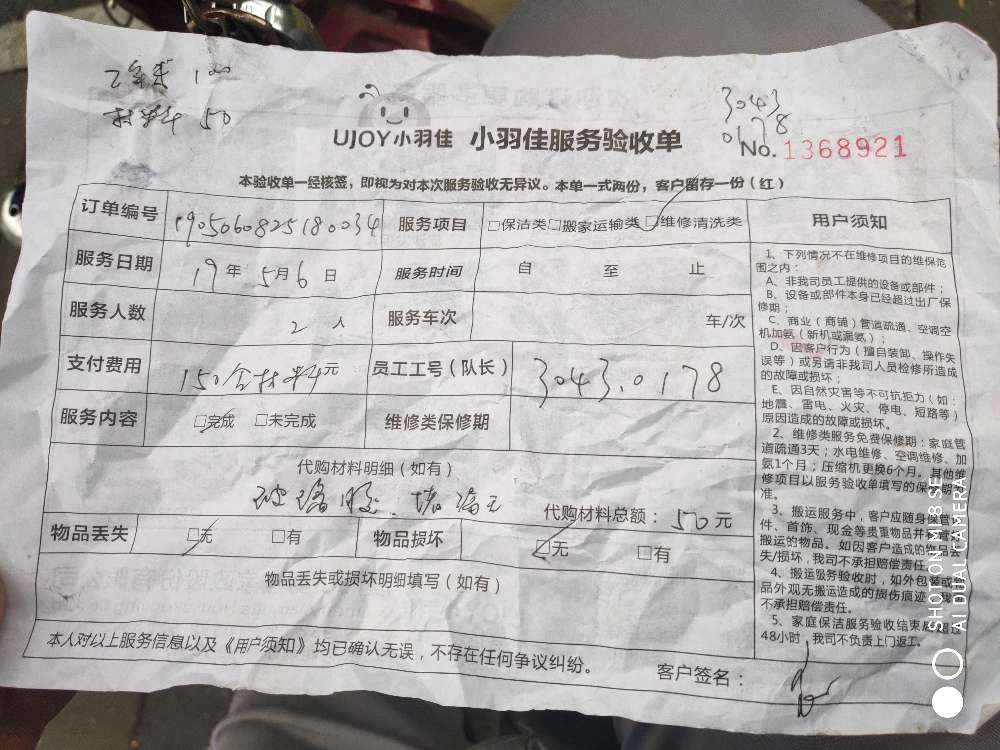 工钱 100
材料 50
3043
0178
UJOY小羽佳 小羽佳服务验收单
No.1368921
本验收单一经核签，即视为对本次服务验收无异议。本单一式两份，客户留存一份（红）
订单编号 1905060825180034 服务项目 □保洁类□搬家运输类□维修清洗类
服务日期 19年5月6日 服务时间 自 至 止
服务人数 2人 服务车次 车/次
支付费用 150含材料元 员工工号（队长） 3043.0178
服务内容 □完成 □未完成 维修类保修期
代购材料明细（如有）
玻璃胶、堵漏王 代购材料总额：50元
物品丢失 □无 □有 物品损坏 □无 □有
物品丢失或损坏明细填写（如有）
本人对以上服务信息以及《用户须知》均已确认无误，不存在任何争议纠纷。
客户签名：
用户须知
1、下列情况不在维修项目的维保范
围之内：
A、非我司员工提供的设备或部件；
B、设备或部件本身已经超过出厂保
修期；
C、商业（商铺）管道疏通、空调空
机加氨（新机或漏氨）；
D、因客户行为（擅自装卸、操作失
误等）或另请非我司人员检修所造成
的故障或损坏；
E、因自然灾害等不可抗拒力（如：
地震、雷电、火灾、停电、短路等）
原因造成的故障或损坏。
2、维修类服务免费保修期：家庭管
道疏通3天；水电维修、空调维修、加
氨1个月；压缩机更换6个月。其他维
修项目以服务验收单填写的保修期为
准。
3、搬运服务中，客户应随身保管
件、首饰、现金等贵重物品并
搬运的物品。如因客户造成的物品
失/损坏，我司不承担赔偿责任。
4、搬运服务验收时，如外包装或物
品外观无搬运造成的损伤痕迹，我
不承担赔偿责任。
5、家庭保洁服务验收结束后超过
48小时，我司不负责上门返工。
SHOT ON MI 8 SE
AI DUAL CAMERA